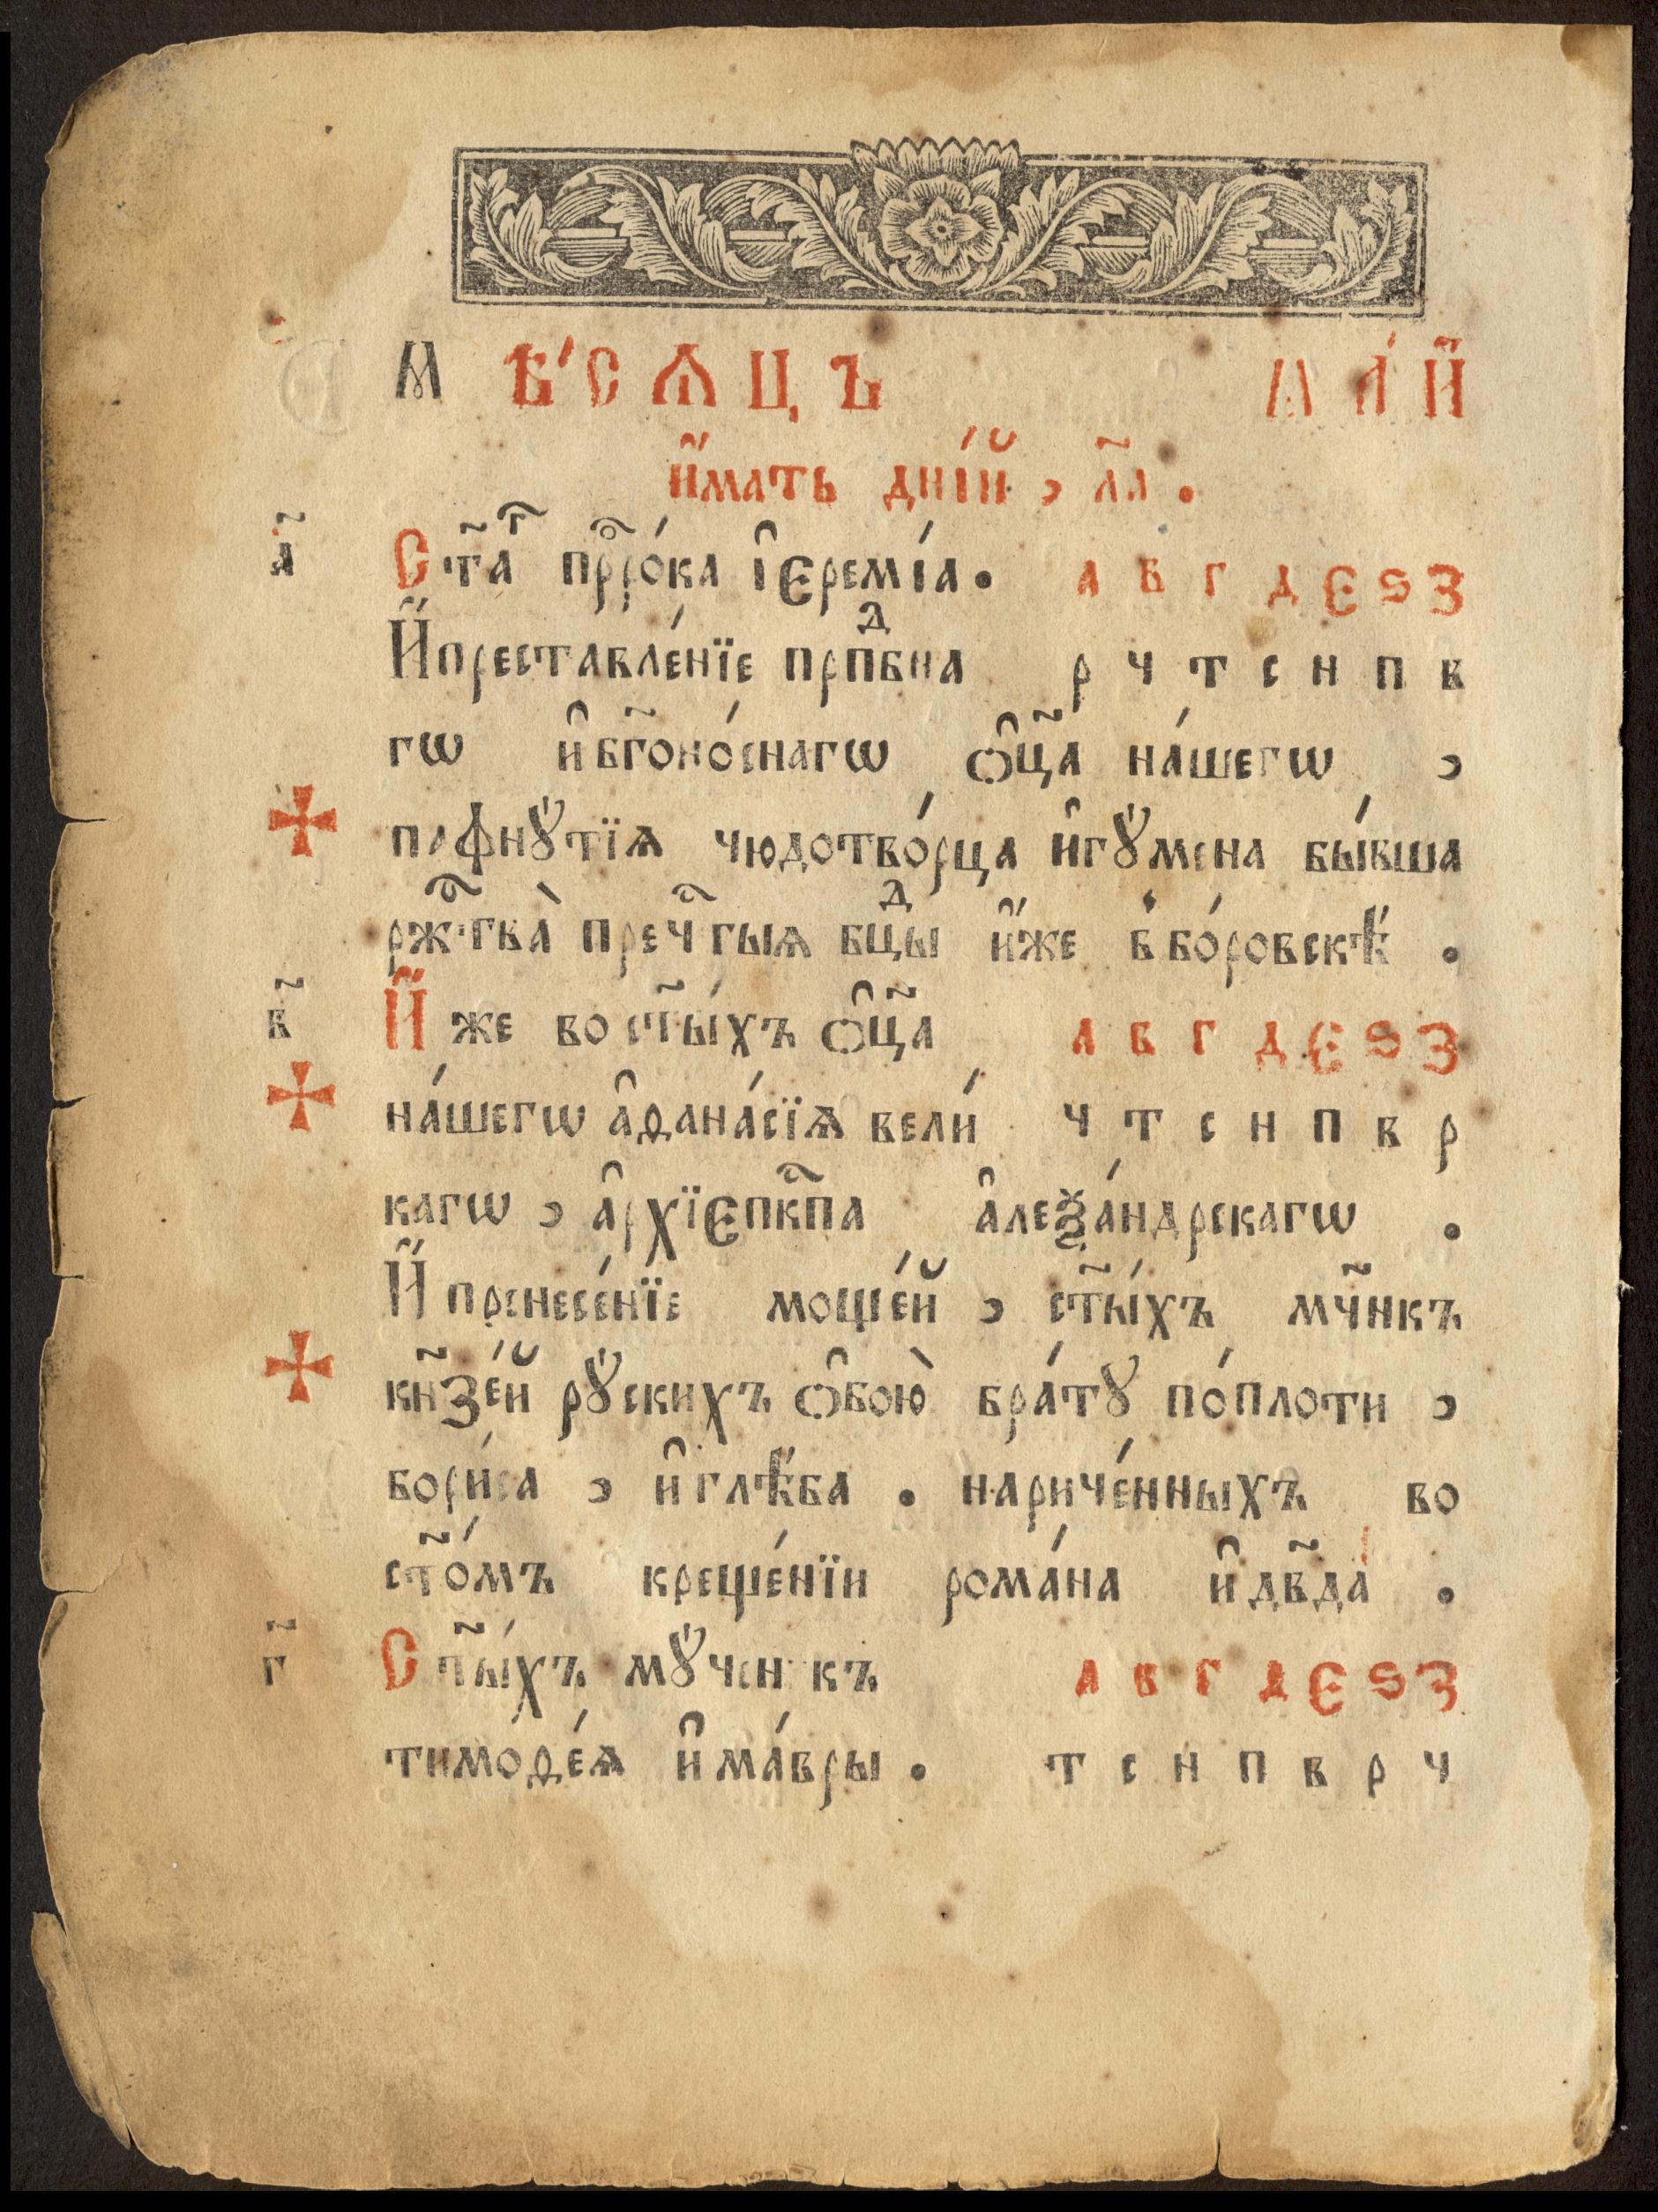 МѢ́СѦЦЪ МА́Й
и҆́мать дні́й , л҃а .
а҃ Ст҃а́гⷪ прⷪ҇ро́ка і҆еремі́а . а в г д е ѕ з
И҆́ преставле́нїе прпⷣбна р ч т с н п в
гѡ и҆ бг҃оно́снагѡ ѻ҆ц҃а̀ на́шегѡ ,
пафнꙋ́тїѧ чюдотво́рца и҆гꙋ́мена бы́вша
ржⷭ҇тва̀ пречⷭ҇тыѧ бцⷣы и҆́же в бо́ровскѣ .
в҃ И҆́же во ст҃ы́хъ ѻ҆ц҃а̀ а в г д е ѕ з
на́шегѡ а҆ѳана́сїѧ вели́ ч т с н п в р
кагѡ , а҆рхїепⷭ҇кпа а҆леѯа́ндрскагѡ .
И҆́ пренесе́нїе моще́й , ст҃ы́хъ мч҃нкъ
кн҃зе́й рꙋ́скихъ ѻ҆бою̀ бра́тꙋ по́плоти ,
бори́са , и҆ глѣ́ба . нарече́нныхъ во
ст҃о́мъ креще́нїи рома́на и҆ дв҃да .
г҃ Ст҃ы́хъ мꙋ́ченикъ а в г д е ѕ з
тимоѳе́ѧ и҆ ма́вры . т с н п в р ч